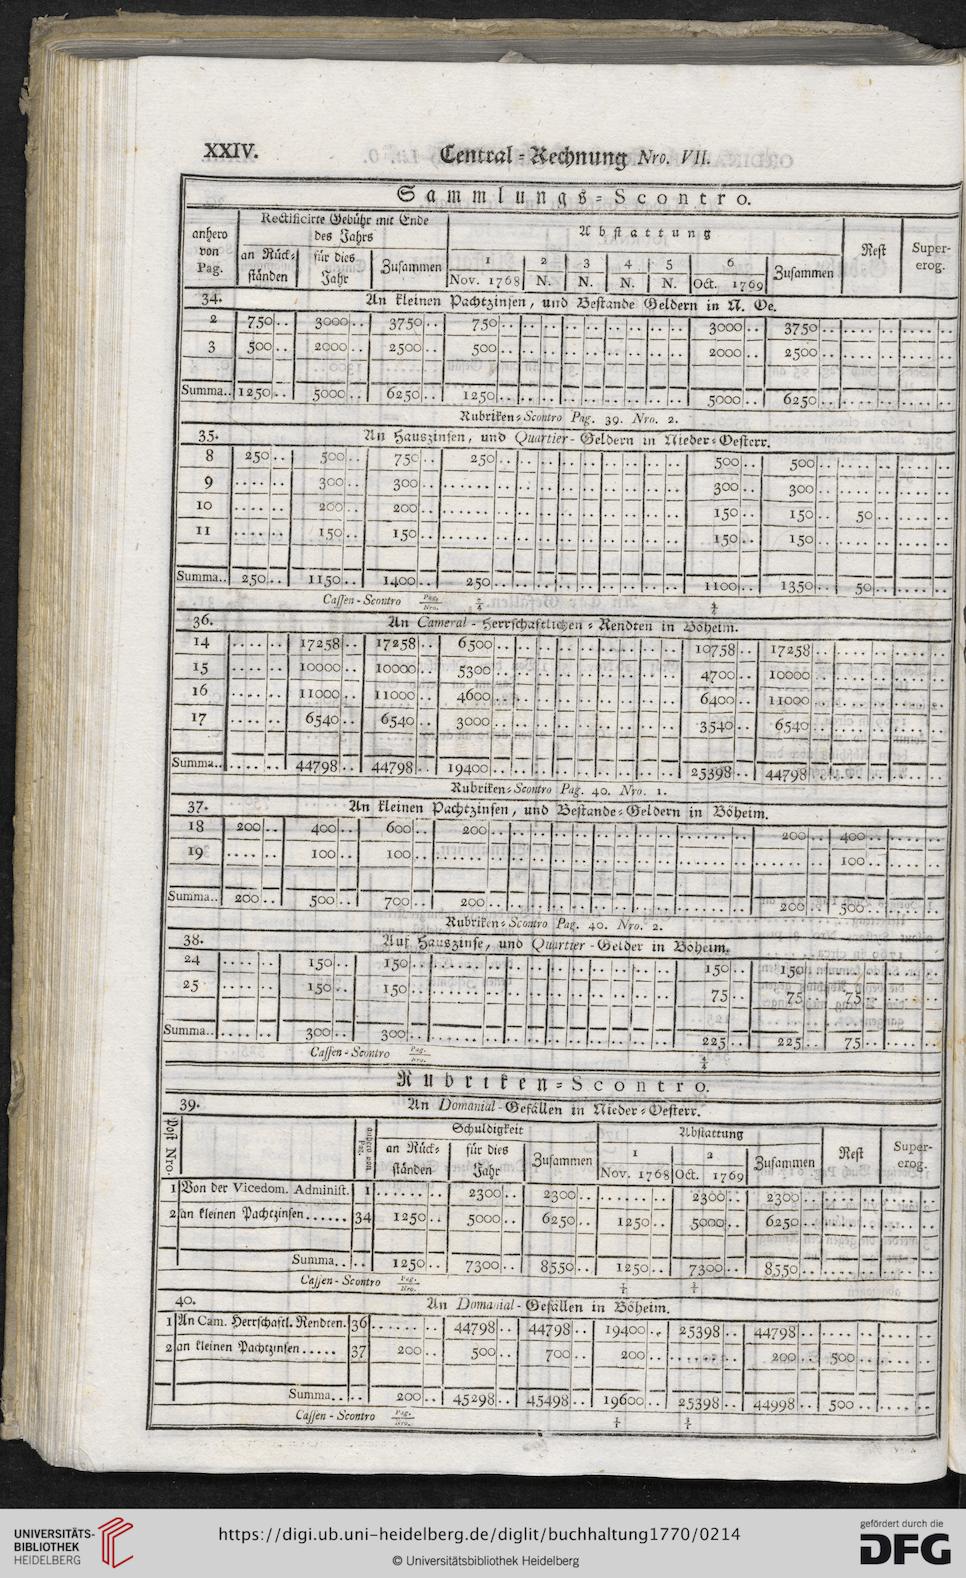 XXIV. Central-Rechnung Nro. VII.
Sammlungs-Scontro.
anhero von Pag. | Rectificirte Gebühr mit Ende des Jahrs | Abstattung | Rest | Super-erog.
an Rück-ständen | für dies Jahr | Zusammen | 1 Nov. 1768 | 2 N. | 3 N. | 4 N. | 5 N. | 6 Oct. 1769 | Zusammen
34. An kleinen Pachtzinsen, und Bestande Geldern in N. Oe.
2 | 750 | 3000 | 3750 | 750 | 3000 | 3750
3 | 500 | 2000 | 2500 | 500 | 2000 | 2500
Summa.. | 1250 | 5000 | 6250 | 1250 | 5000 | 6250
Rubriken-Scontro Pag. 39. Nro. 2.
35. An Hauszinsen, und Quartier-Geldern in Nieder-Oesterr.
8 | 250 | 500 | 750 | 250 | 500 | 500
9 | 300 | 300 | 300 | 300
10 | 200 | 200 | 150 | 150 | 50
11 | 150 | 150 | 150 | 150
Summa.. | 250 | 1150 | 1400 | 250 | 1100 | 1350 | 50
Cassen-Scontro Pag. Nro.
36. An Cameral-Herrschaftlichen-Rendten in Böheim.
14 | 17258 | 17258 | 6500 | 10758 | 17258
15 | 10000 | 10000 | 5300 | 4700 | 10000
16 | 11000 | 11000 | 4600 | 6400 | 11000
17 | 6540 | 6540 | 3000 | 3540 | 6540
Summa.. | 44798 | 44798 | 19400 | 25398 | 44798
Rubriken-Scontro Pag. 40. Nro. 1.
37. An kleinen Pachtzinsen, und Bestande-Geldern in Böheim.
18 | 200 | 400 | 600 | 200 | 200 | 400
19 | 100 | 100 | 100
Summa.. | 200 | 500 | 700 | 200 | 200 | 500
Rubriken-Scontro Pag. 40. Nro. 2.
38. Auf Hauszinse, und Quartier-Gelder in Böheim.
24 | 150 | 150 | 150 | 150
25 | 150 | 150 | 75 | 75 | 75
Summa.. | 300 | 300 | 225 | 225 | 75
Cassen-Scontro Pag. Nro.
Rubriken-Scontro.
39. An Domanial-Gefällen in Nieder-Oesterr.
Post Nro. | anhero von Pag. | Schuldigkeit | Abstattung | Rest | Super-erog.
an Rück-ständen | für dies Jahr | Zusammen | 1 Nov. 1768 | 2 Oct. 1769 | Zusammen
1 | Von der Vicedom. Administ. | 1 | 2300 | 2300 | 2300 | 2300
2 | an kleinen Pachtzinsen...... | 34 | 1250 | 5000 | 6250 | 1250 | 5000 | 6250
Summa.. | 1250 | 7300 | 8550 | 1250 | 7300 | 8550
Cassen-Scontro Pag. Nro.
40. An Domanial-Gefällen in Böheim.
1 | An Cam. Herrschaftl. Rendten. | 36 | 44798 | 44798 | 19400 | 25398 | 44798
2 | an kleinen Pachtzinsen..... | 37 | 200 | 500 | 700 | 200 | 200 | 500
Summa.. | 200 | 45298 | 45498 | 19600 | 25398 | 44998 | 500
Cassen-Scontro Pag. Nro.
UNIVERSITÄTS-
BIBLIOTHEK
HEIDELBERG
https://digi.ub.uni-heidelberg.de/diglit/buchhaltung1770/0214
© Universitätsbibliothek Heidelberg
gefördert durch die
DFG